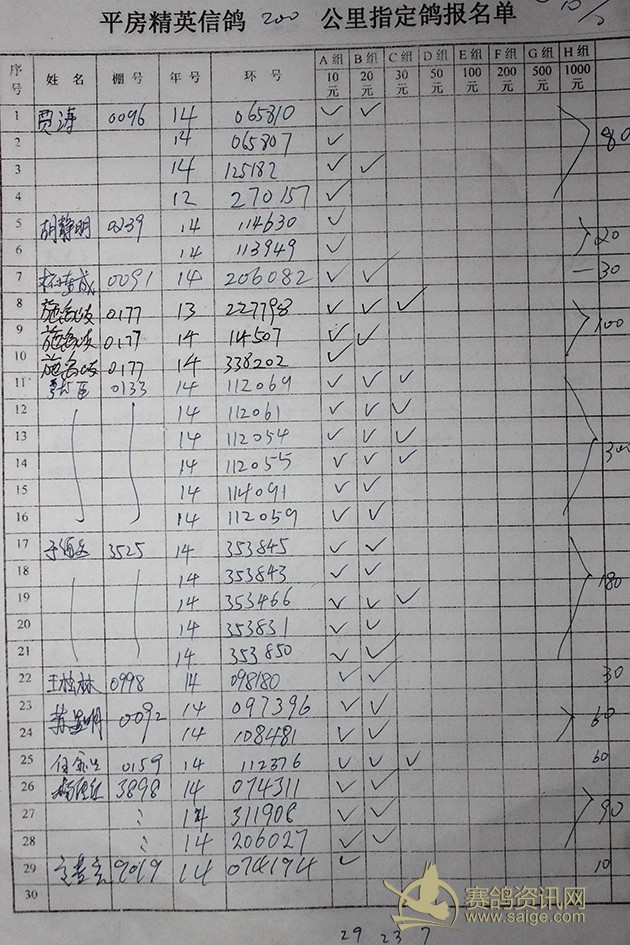 平房精英信鸽 200 公里指定鸽报名单
序号 姓名 棚号 年号 环号 A组10元 B组20元 C组30元 D组50元 E组100元 F组200元 G组500元 H组1000元
1 贾涛 0096 14 065810 ✓ ✓
2 14 065807 ✓ 80
3 14 125182 ✓ ✓
4 12 270157 ✓
5 胡静明 0239 14 114630 ✓
6 14 113949 ✓ 20
7 0091 14 206082 ✓ ✓ — 30
8 0177 13 227798 ✓ ✓ ✓
9 0177 14 14507 ✓ ✓ 100
10 0177 14 338202 ✓
11 0133 14 112069 ✓ ✓ ✓
12 14 112061 ✓ ✓ ✓
13 14 112054 ✓ ✓ ✓
14 14 112055 ✓ ✓ ✓
15 14 114091 ✓ ✓
16 14 112059 ✓ ✓
17 3525 14 353845 ✓ ✓
18 14 353843 ✓ ✓
19 14 353466 ✓ ✓ ✓ 180
20 14 353831 ✓ ✓
21 14 353850 ✓ ✓
22 王松林 0998 14 098180 ✓ ✓ 30
23 0092 14 097396 ✓ ✓ 60
24 14 108481 ✓ ✓
25 0159 14 112376 ✓ ✓ ✓ 60
26 3898 14 074311 ✓ ✓
27 14 311908 ✓ ✓ 90
28 14 206027 ✓ ✓
29 9019 14 074194 ✓ 10
30
29 23 7
赛鸽资讯网
www.saige.com